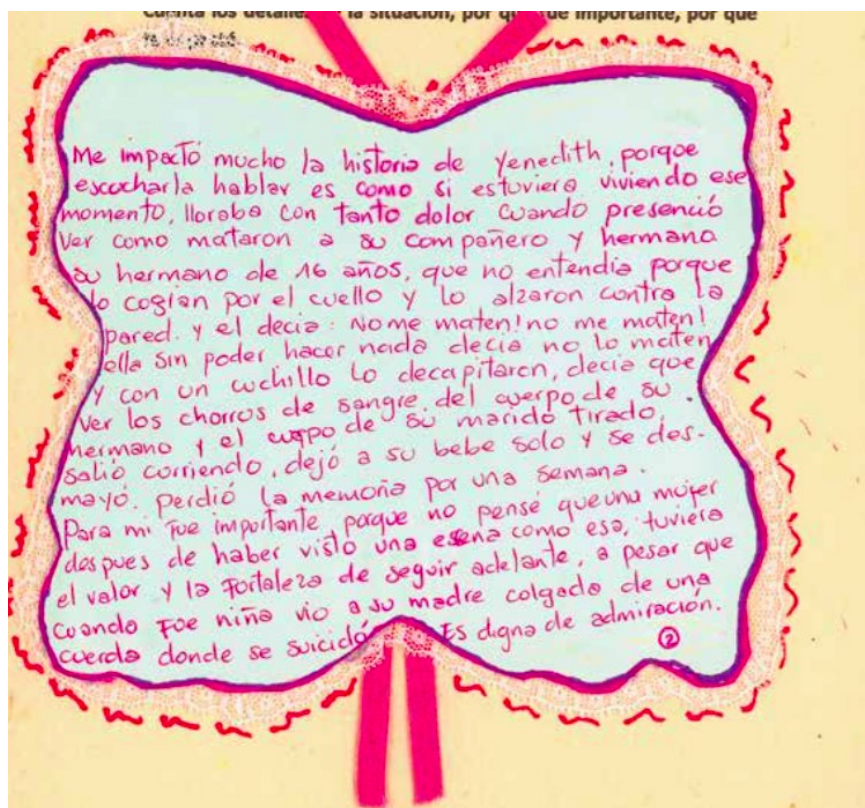 Cuenta los detalles la situación, por qué fue importante, por que
Me impactó mucho la historia de Yenedith, porque
escucharla hablar es como si estuviera viviendo ese
momento, lloraba con tanto dolor cuando presenció
ver como mataron a su compañero y hermano
su hermano de 16 años, que no entendia porque
lo cogian por el cuello y lo alzaron contra la
pared. y el decia: No me maten! no me maten!
ella sin poder hacer nada decia no lo maten
y con un cuchillo lo decapitaron, decia que
ver los chorros de sangre del cuerpo de su
hermano y el cuerpo de su marido tirado,
salio corriendo, dejó a su bebe solo y se des-
mayó. Perdió la memoria por una semana.
Para mi fue importante porque no pensé que una mujer
despues de haber visto una esena como esa, tuviera
el valor y la fortaleza de seguir adelante, a pesar que
cuando fue niña vio a su madre colgada de una
cuerda donde se suicidó. Es digna de admiración.
2